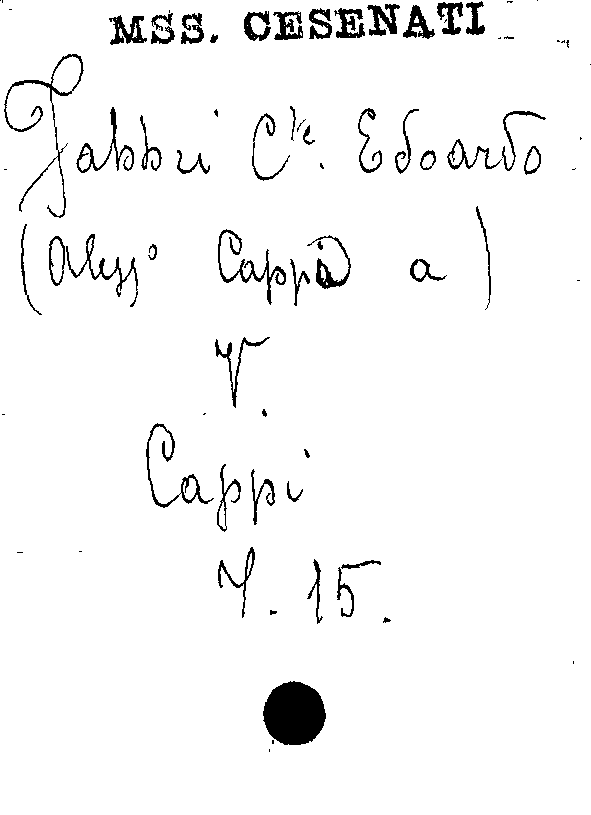 MSS. CESENATI
Fabbri C.te Edoardo
(Aless° Cappi a)
V.
Cappi
Y. 15.